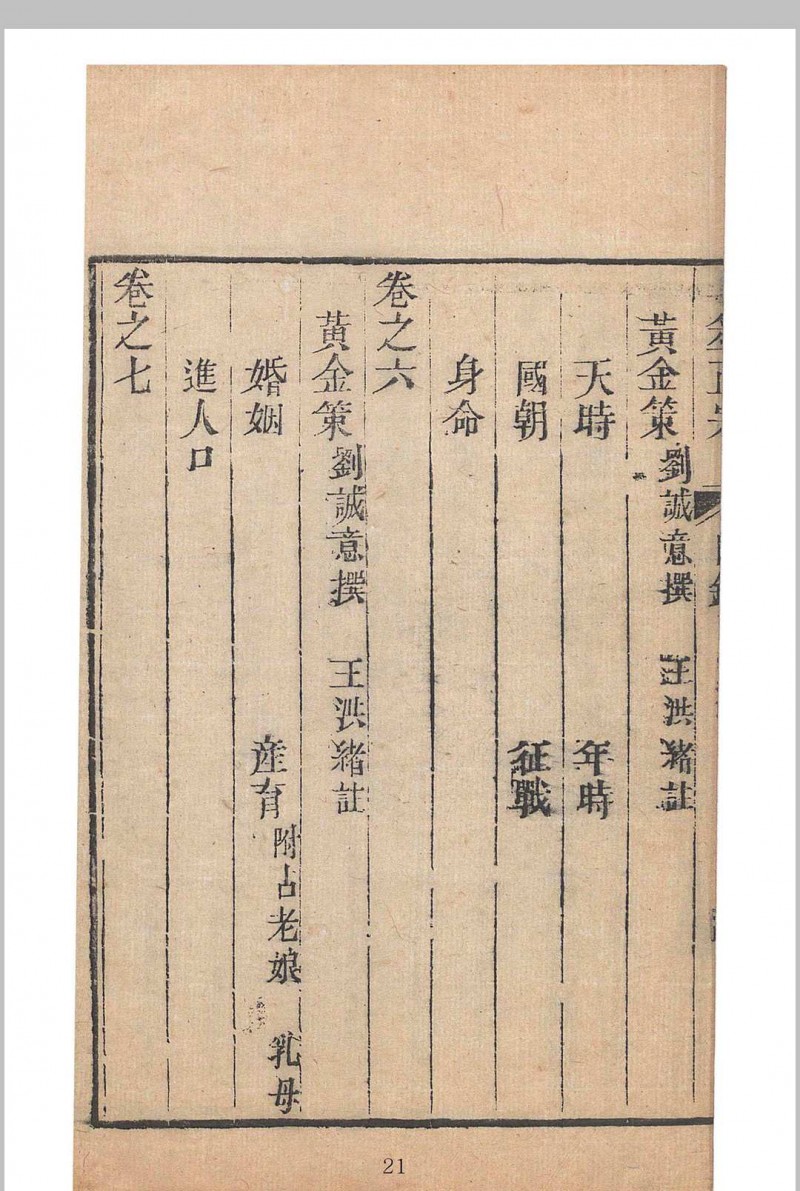 黃金策 劉誠意撰 汪洪緒註
天時 年時
國朝 征戰
身命
卷之六
黃金策 劉誠意撰 王洪緒註
婚姻 産育 附占老娘 乳母
進人口
卷之七
21